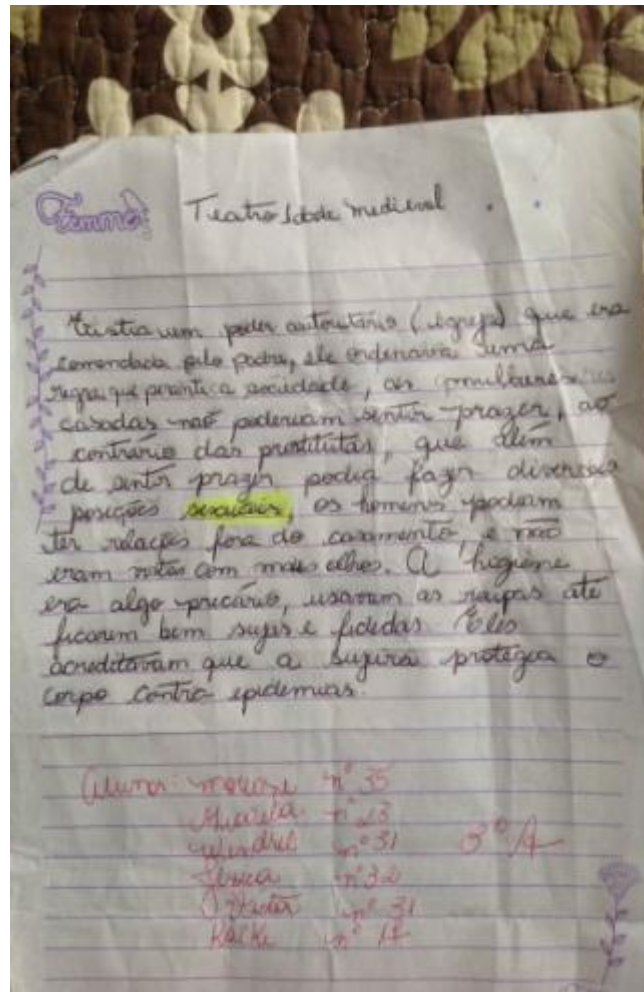 Femme
Teatro Idade medieval.
Existia um poder autoritário (igreja) que era
comandada pelo padre, ele ordenava uma
regra que perante a sociedade, as
casadas não poderiam sentir prazer, ao
contrário das prostitutas, que além
de sentir prazer podia fazer diversas
posições sexuais, os homens poderiam
ter relações fora do casamento, e não
eram vistos com maus olhos. A higiene
era algo precário, usavam as roupas até
ficarem bem sujas e fedidas. Eles
acreditavam que a sujeira protegia o
corpo contra epidemias.
Alunos: n° 35
n° 23
n° 31 3° A
Jéssica n° 32
n° 31
n° 17